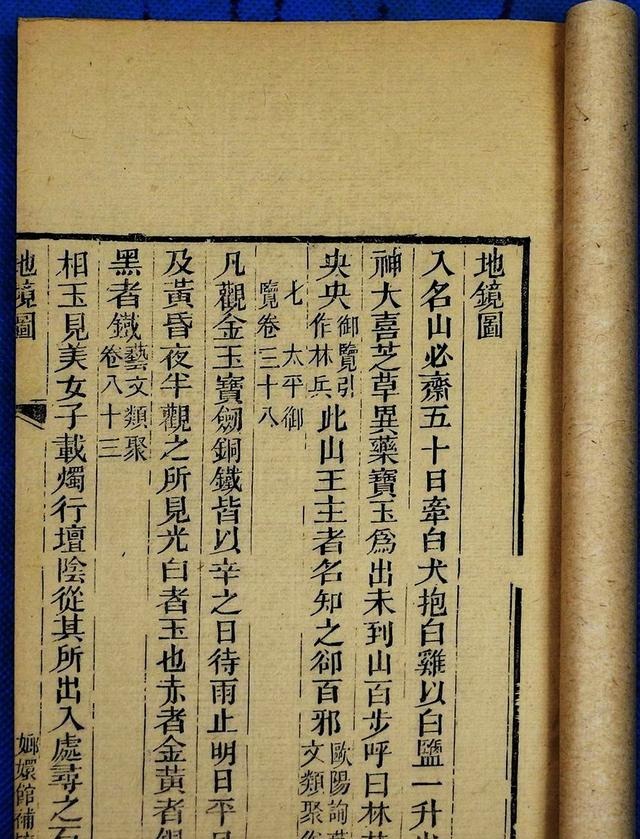 地鏡圖
入名山必齋五十日牽白犬抱白雞以白鹽一升
神大喜芝草異藥寶玉爲出未到山百步呼曰林
央央御覽引作林兵此山王主者名知之卻百邪歐陽詢文類聚
七 太平御覽卷三十八
凡觀金玉寶劒銅鐵皆以辛之日待雨止明日平
及黃昏夜半觀之所見光白者玉也赤者金黃者
黑者鐵藝文類聚卷八十三
相玉見美女子載燭行壇陰從其所出入處尋之
地鏡圖
嫏嬛館補